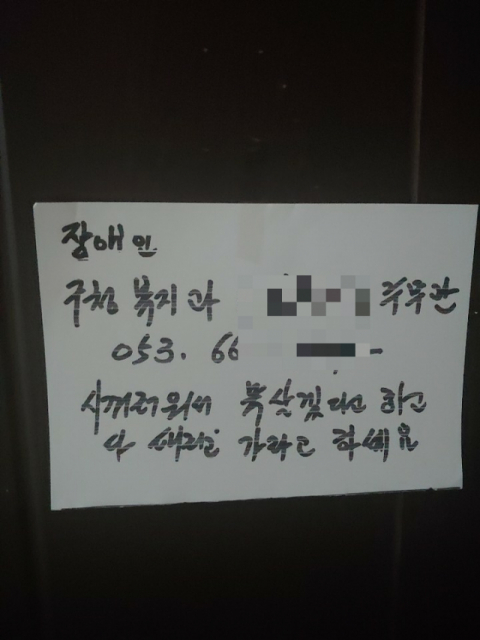 장애인
구청 복지과 주무관
053. 66
시끄러워서 못살겠다고 하고
가라고 하세요